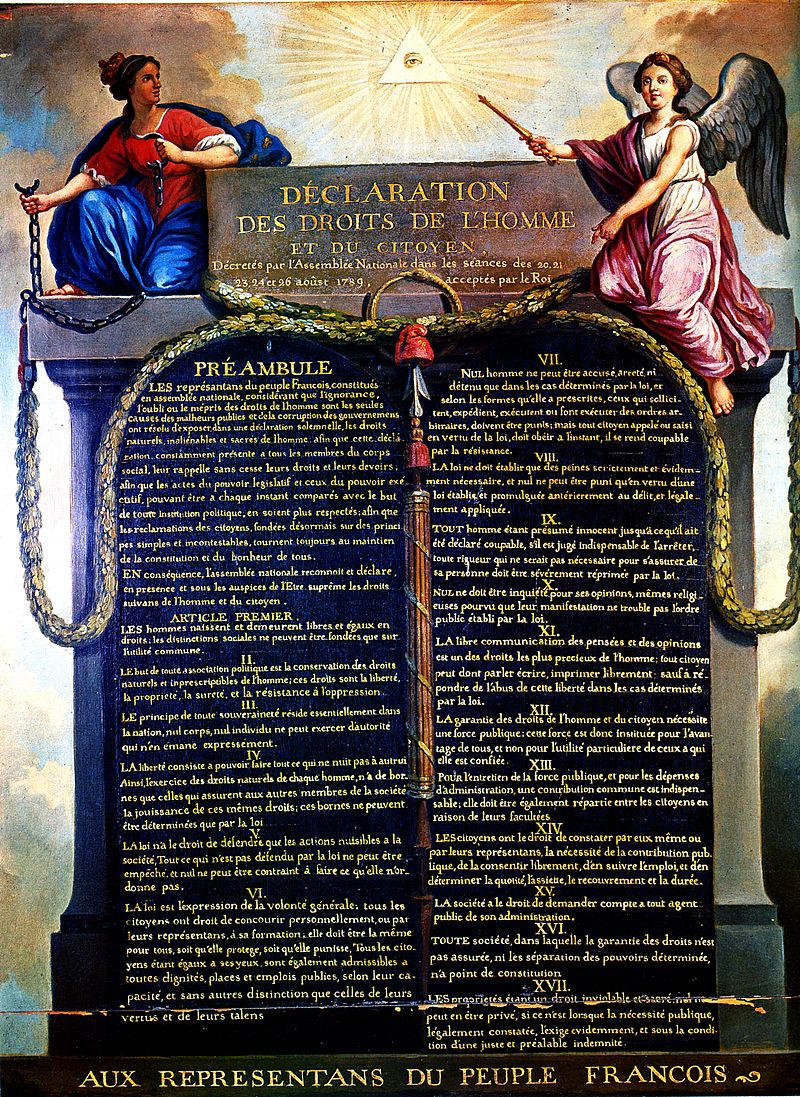 DÉCLARATION
DES DROITS DE L'HOMME
ET DU CITOYEN,
Décretés par l'Assemblée Nationale dans les séances des 20. 21
23. 24 et 26 aoûst 1789, acceptés par le Roi
PRÉAMBULE
LES représantans du peuple Francois, constitués
en assemblée nationale, considérant que l'ignorance,
l'oubli ou le mépris des droits de l'homme sont les seules
causes des malheurs publics et de la corruption des gouvernemens
ont résolu d'exposer dans une déclaration solemnelle, les droits
naturels, inaliénables et sacrés de l'homme: afin que cette décla
ration, constamment présente a tous les membres du corps
social, leur rappelle sans cesse leurs droits et leurs devoirs,
afin que les actes du pouvoir legislatif et ceux du pouvoir exé
cutif, pouvant être a chaque instant comparés avec le but
de toute institution politique, en soient plus respectés; afin que
les reclamations des citoyens, fondées désormais sur des princi
pes simples et incontestables, tournent toujours au maintien
de la constitution et du bonheur de tous.
EN conséquence, l'assemblée nationale reconnoit et déclare,
en presence et sous les auspices de l'Etre suprême les droits
suivans de l'homme et du citoyen.
ARTICLE PREMIER.
LES hommes naissent et demeurent libres et égaux en
droits. les distinctions sociales ne peuvent être fondées que sur
l'utilité commune.
II.
LE but de toute association politique est la conservation des droits
naturels et inprescriptibles de l'homme; ces droits sont la liberté,
la proprieté, la sureté, et la résistance à l'oppression.
III.
LE principe de toute souveraineté réside essentiellement dans
la nation, nul corps, nul individu ne peut exercer d'autorité
qui n'en émane expressement.
IV.
LA liberté consiste a pouvoir faire tout ce qui ne nuit pas à autrui
Ainsi, l'exercice des droits naturels de chaque homme, n'a de bor
nes que celles qui assurent aux autres membres de la société
la jouissance de ces mêmes droits; ces bornes ne peuvent
être déterminées que par la loi
V.
LA loi n'a le droit de défendre que les actions nuisibles a la
société. Tout ce qui n'est pas défendu par la loi ne peut être
empêché, et nul ne peut être contraint à faire ce qu'elle n'or-
donne pas.
VI.
LA loi est l'expression de la volonté générale; tous les
citoyens ont droit de concourir personnellement, ou par
leurs représentans, à sa formation; elle doit être la même
pour tous, soit qu'elle protege, soit qu'elle punisse, Tous les cito-
yens étant égaux a ses yeux, sont également admissibles a
toutes dignités, places et emplois publics, selon leur ca-
pacité, et sans autres distinction que celles de leurs
vertus et de leurs talens
VII.
NUL homme ne peut être accusé, arreté, ni
détenu que dans les cas déterminés par la loi, et
selon les formes qu'elle a prescrites, ceux qui sollici-
tent, expédient, exécutent ou font exécuter des ordres ar-
bitraires, doivent être punis; mais tout citoyen appelé ou saisi
en vertu de la loi, doit obéir a l'instant, il se rend coupable
par la résistance.
VIII.
LA loi ne doit établir que des peines strictement et évidem-
ment nécessaire, et nul ne peut être puni qu'en vertu d'une
loi établie et promulguée antérierement au délit, et légale-
ment appliquée.
IX.
TOUT homme étant présumé innocent jusqu'a ce qu'il ait
été déclaré coupable, s'il est jugé indispensable de l'arrêter,
toute rigueur qui ne serait pas nécessaire pour s'assurer de
sa personne doit être sévèrement réprimée par la loi.
X.
NUL ne doit être inquiété pour ses opinions, mêmes religi-
euses pourvu que leur manifestation ne trouble pas l'ordre
public établi par la loi.
XI.
LA libre communication des pensées et des opinions
est un des droits les plus precieux de l'homme; tout citoyen
peut dont parler écrire, imprimer librement; sauf à ré-
pondre de l'abus de cette liberté dans les cas déterminés
par la loi.
XII.
LA garantie des droits de l'homme et du citoyen nécessite
une force publique; cette force est donc instituée pour l'avan-
tage de tous, et non pour l'utilité particuliere de ceux a qui
elle est confiée.
XIII.
POUR l'entretien de la force publique, et pour les dépenses
d'administration, une contribution commune est indispen-
sable; elle doit être également répartie entre les citoyens en
raison de leurs facultées
XIV.
LES citoyens ont le droit de constater par eux même ou
par leurs représentans, la nécessité de la contribution pub-
lique, de la consentir librement, d'en suivre l'emploi, et d'en
déterminer la quotité, l'assiette, le recouvrement et la durée.
XV.
LA société a le droit de demander compte a tout agent
public de son administration.
XVI.
TOUTE société, dans laquelle la garantie des droits n'est
pas assurée, ni les séparation des pouvoirs déterminée,
n'a point de constitution
XVII.
LES proprietés étant un droit inviolable et sacré, nul ne
peut en être privé, si ce n'est lorsque la nécessité publique,
légalement constatée, l'exige evidemment, et sous la condi
tion d'une juste et préalable indemnité.
AUX REPRESENTANS DU PEUPLE FRANCOIS